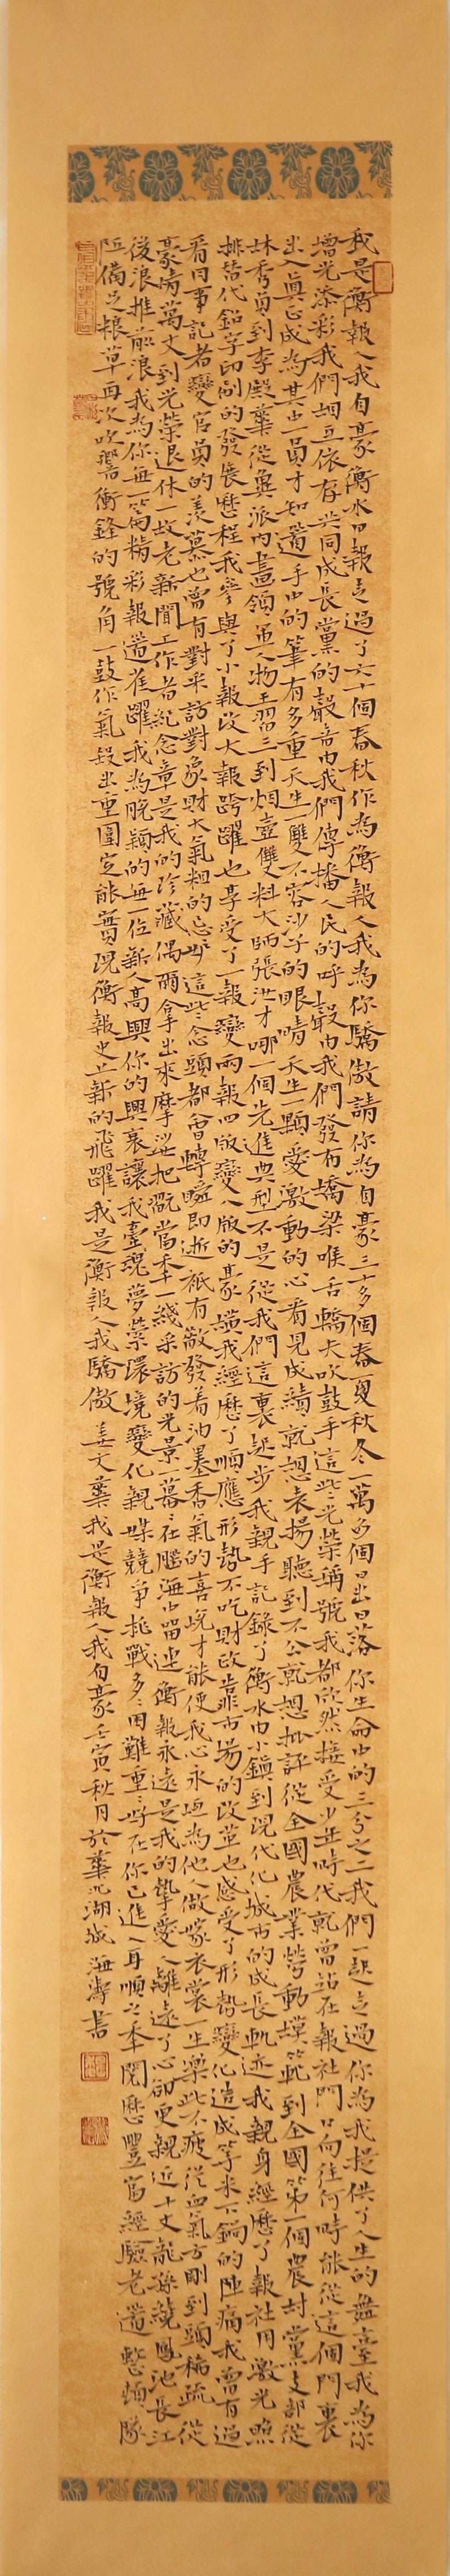 我是衡報人我自豪衡水日報走過了六十個春秋作為衡報人我為你驕傲請你為自豪三十多個春夏秋冬一萬多個日出日落你生命中的三分之二我們一起走過你為我提供了人生的舞臺我為你
增光添彩我們相互依存共同成長黨的聲音由我們傳播人民的呼聲由我們發布橋梁喉舌轎夫吹鼓手這些光榮稱號我都欣然接受少年時代就曾站在報社門口向往何時能從這個門裏
出入真正成為其中一員才知道手中的筆有多重天生一雙不容沙子的眼睛天生一顆愛激動的心看見成績就想表揚聽到不公就想批評從全國農業勞動模範到全國第一個農村黨支部從
林秀貞到李殿華從冀派內畫領軍人物王習三到烟壺雙料大師張汝才哪一個先進典型不是從我們這裏起步我親手記錄了衡水由小鎮到現代化城市的成長軌迹我親身經歷了報社用激光照
排替代鉛字印刷的發展歷程我參與了小報改大報跨躍也享受了一報變兩報四版變八版的豪邁我經歷了順應形勢不吃財政靠市場的改革也感受了形勢變化造成等米下鍋的陣痛我曾有過
看同事記者變官員的羡慕也曾有對采訪對象財大氣粗的忘妒這些念頭都會轉瞬即逝衹有散發着油墨香氣的喜悅才能使我心永恆為他人做嫁衣裳一生樂此不疲從血氣方剛到頭稀疏從
豪情萬丈到光榮退休一枚老新聞工作者紀念章是我的珍藏偶爾拿出來摩挲把翫當年一綫采訪的光景一幕幕在腦海中留連衡報永遠是我的摯愛人離遠了心卻更親近十丈龍孫繞鳳池長江
後浪推前浪我為你每一篇精彩報道雀躍我為脫穎的每一位新人高興你的興衰讓我臺魂夢縈環境變化親媒競爭挑戰多多困難重重好在你已進入耳順之年閱歷豐富經驗老道整頓隊
伍備足糧草再次吹響衝鋒的號角一鼓作氣殺出重圍定能實現衡報史上新的飛躍我是衡報人我驕傲 姜文華我是衡報人我自豪壬寅秋月於華北湖城 海濤書